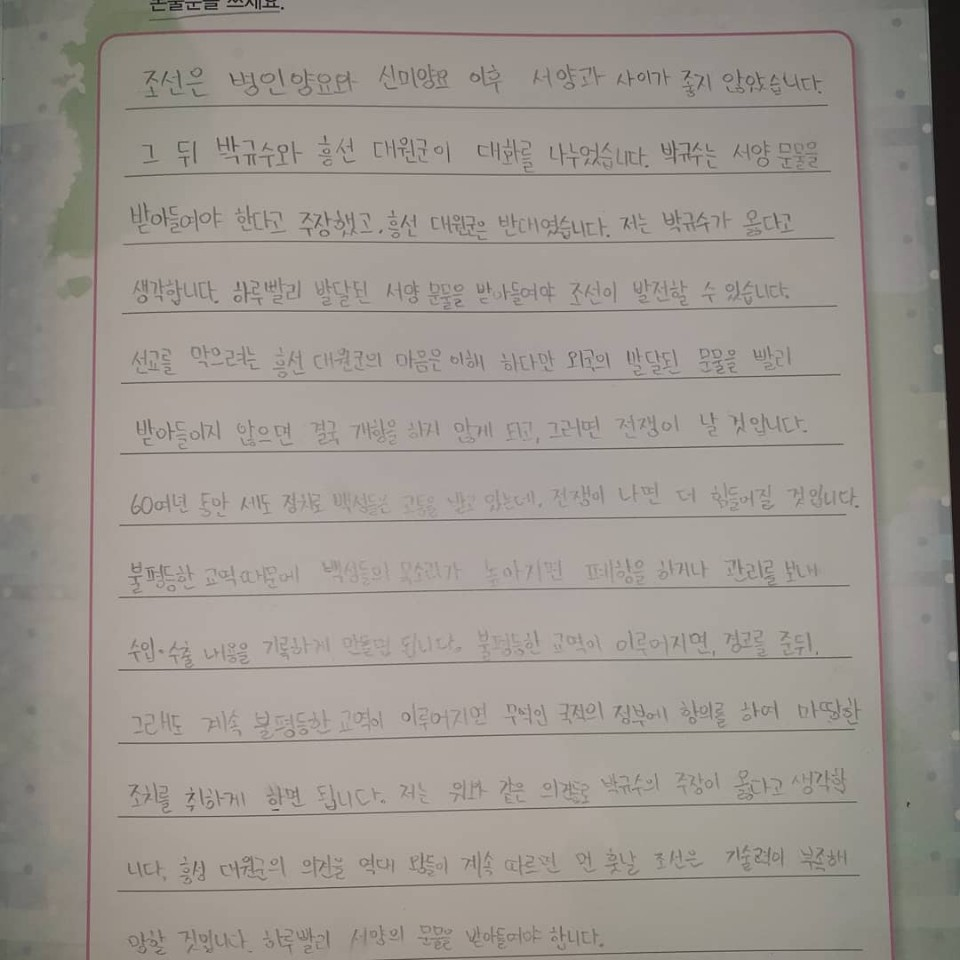 논술문을 쓰세요.
조선은 병인양요와 신미양요 이후 서양과 사이가 좋지 않았습니다.
그 뒤 박규수와 흥선 대원군이 대화를 나누었습니다. 박규수는 서양 문물을
받아들여야 한다고 주장했고, 흥선 대원군은 반대였습니다. 저는 박규수가 옳다고
생각합니다. 하루빨리 발달된 서양 문물을 받아들여야 조선이 발전할 수 있습니다.
선교를 막으려는 흥선 대원군의 마음은 이해 하다만 외국의 발달된 문물을 빨리
받아들이지 않으면 결국 개항을 하지 않게 되고, 그러면 전쟁이 날 것입니다.
60여년 동안 세도 정치로 백성들은 고통을 받고 있는데, 전쟁이 나면 더 힘들어질 것입니다.
불평등한 교역때문에 백성들의 목소리가 높아지면 폐항을 하거나 관리를 보내
수입·수출 내용을 기록하게 만들면 됩니다. 불평등한 교역이 이루어지면, 경고를 준뒤,
그래도 계속 불평등한 교역이 이루어지면 무역인 국적의 정부에 항의를 하여 마땅한
조치를 취하게 하면 됩니다. 저는 위와 같은 의견들로 박규수의 주장이 옳다고 생각합
니다. 흥성 대원군의 의견을 역대 왕들이 계속 따르면 먼 훗날 조선은 기술력이 부족해
망할 것입니다. 하루빨리 서양의 문물을 받아들여야 합니다.